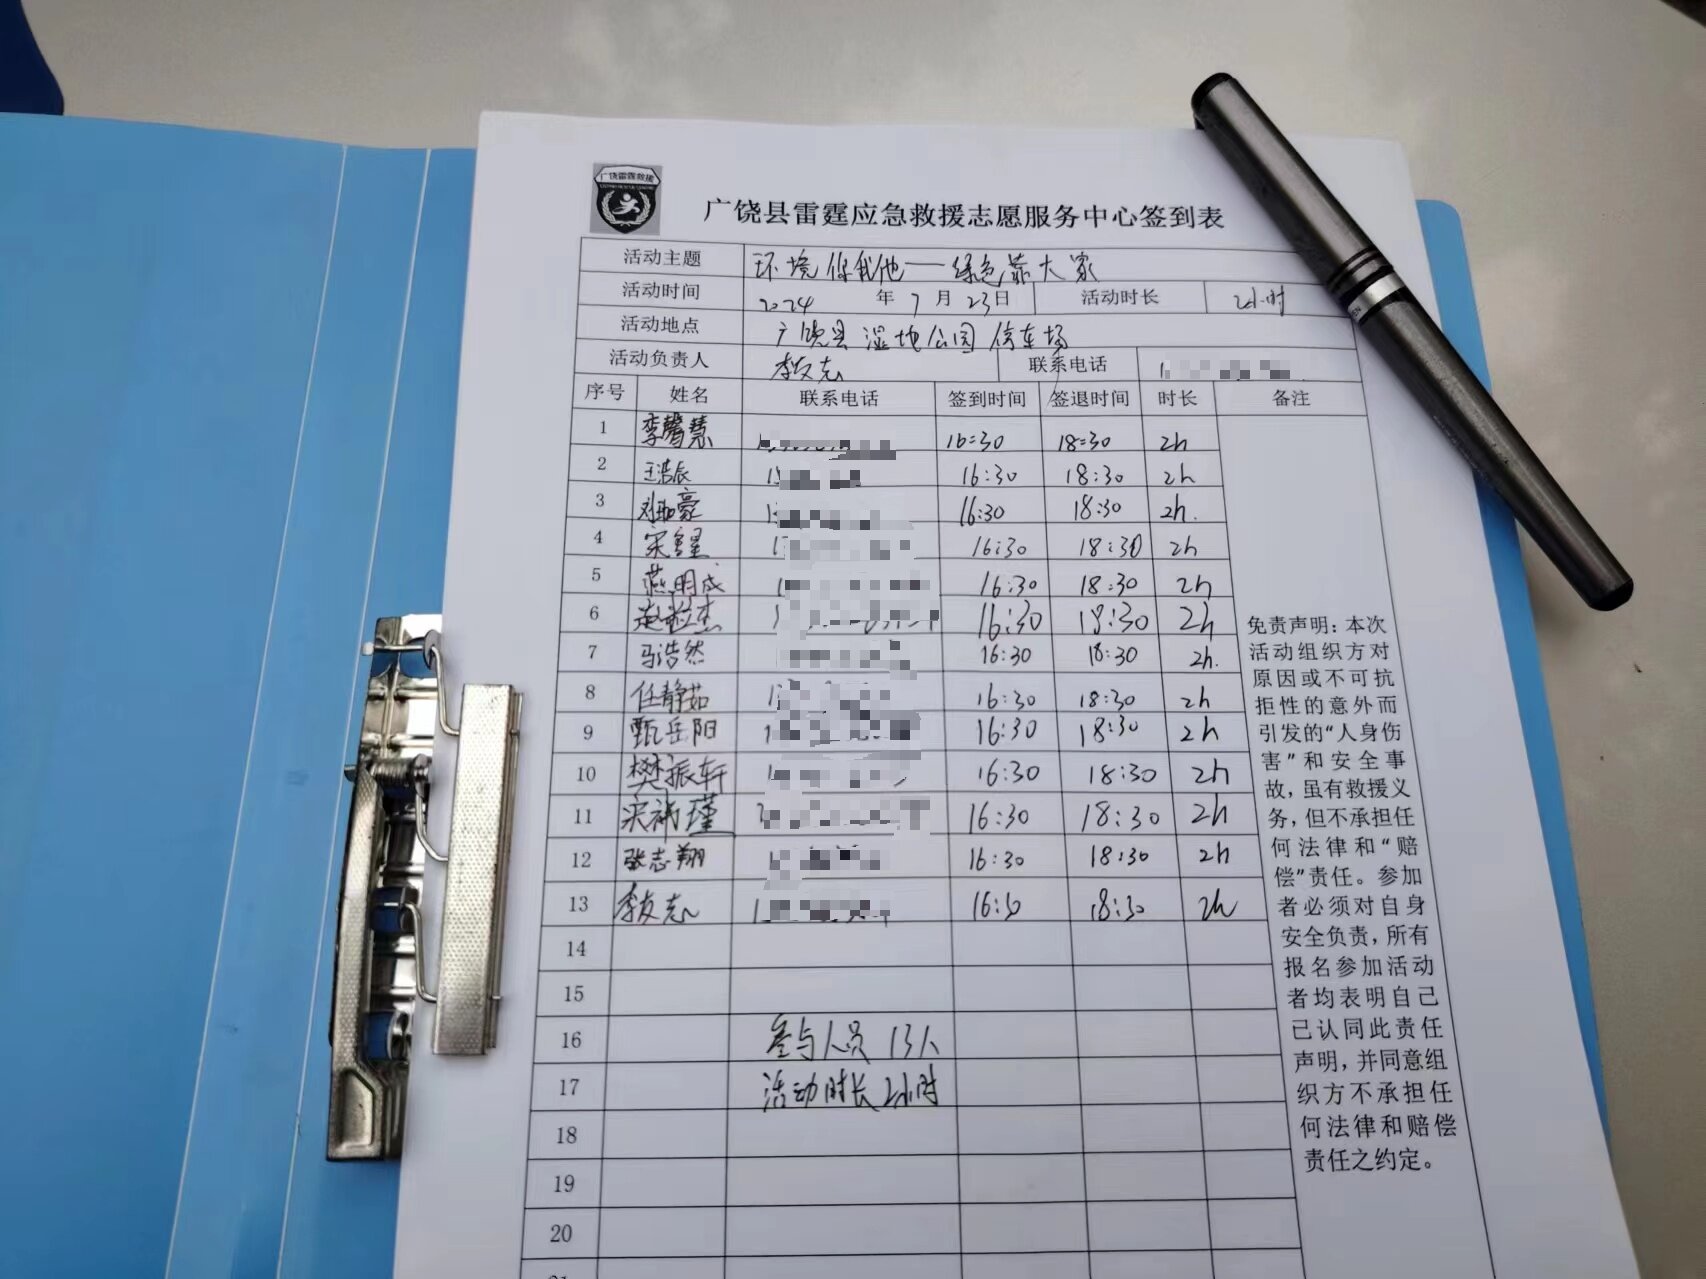 广饶雷霆救援
广饶县雷霆应急救援志愿服务中心签到表
活动主题 环境你我他——绿色靠大家
活动时间 2024 年 7 月 23 日 活动时长 2小时
活动地点 广饶县湿地公园停车场
活动负责人 李友志 联系电话
序号 姓名 联系电话 签到时间 签退时间 时长 备注
1 李馨慧 16:30 18:30 2h
2 王浩辰 16:30 18:30 2h
3 16:30 18:30 2h.
4 16:30 18:30 2h
5 燕明成 16:30 18:30 2h
6 16:30 18:30 2h
7 马浩然 16:30 18:30 2h.
8 任静茹 16:30 18:30 2h
9 甄岳阳 16:30 18:30 2h
10 樊振轩 16:30 18:30 2h
11 16:30 18:30 2h
12 张志翔 16:30 18:30 2h
13 李友志 16:30 18:30 2h
14
15
16 参与人员 13人
17 活动时长 2小时
18
19
20
免责声明：本次
活动组织方对
原因或不可抗
拒性的意外而
引发的“人身伤
害”和安全事
故，虽有救援义
务，但不承担任
何法律和“赔
偿”责任。参加
者必须对自身
安全负责，所有
报名参加活动
者均表明自己
已认同此责任
声明，并同意组
织方不承担任
何法律和赔偿
责任之约定。